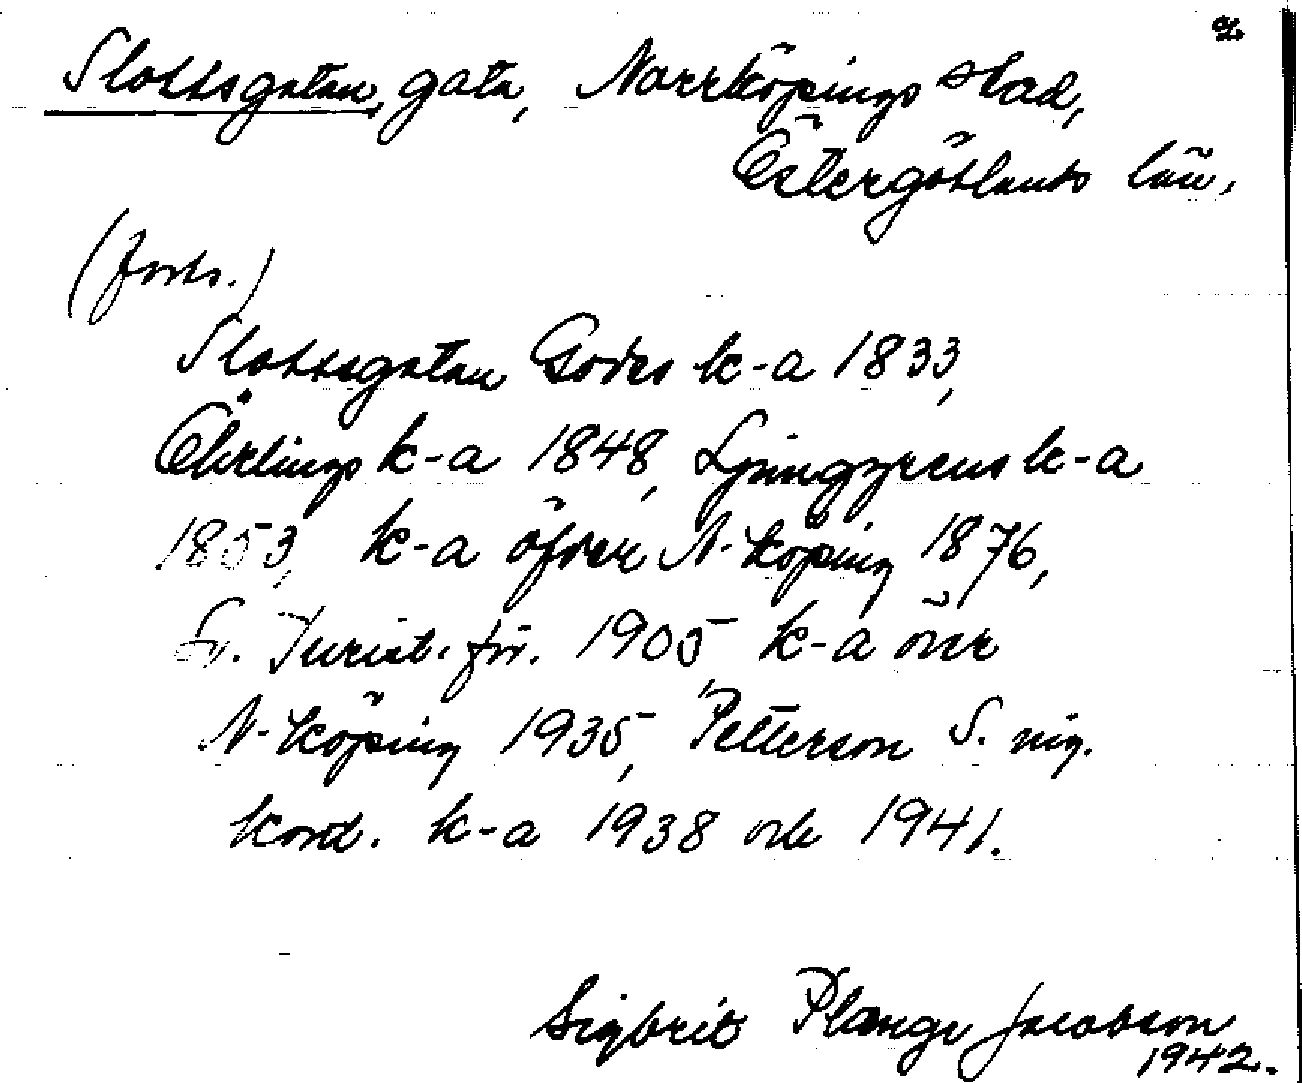 2.
Slottsgatan, gata, Norrköpings stad,
Östergötlands län,
(forts.)
Slottsgatan Godes k-a 1833,
Öhrlings k-a 1848, Ljunggrens k-a
1853, k-a öfver N-köping 1876,
Sv. Turist. för. 1905 k-a över
N-köping 1935, Petterson S. nig.
kord. k-a 1938 och 1941.
Sigbrit Plange Jacobson
1942.